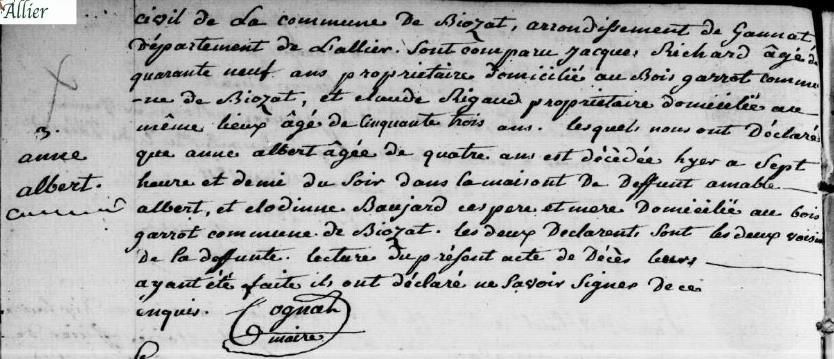 Allier
civil de La commune De Biozat, arrondissement de Gannat
Département de L'allier. Sont comparu jacques Richard âgé de
quarante neuf ans proprietaire domicilié au Bois garrot commu
-ne de Biozat, et claude Rigaud proprietaire domicilié au
même lieux âgé de Cinquante trois ans. lesquels nous ont Déclaré
3.
anne
albert.
que anne albert âgée de quatre ans est décèdée hyer a Sept
heure et demi du Soir dans la maisont De Deffunt amable
albert, et clodinne Baujard ces pere et mere Domicilié au bois
garrot commune de Biozat. les deux Declarents sont les deux voisin
De la deffunte. lecture du présent acte de Décès leurs
ayant été faite ils ont déclaré ne Savoir Signer de ce
enquis.
Cognat
maire